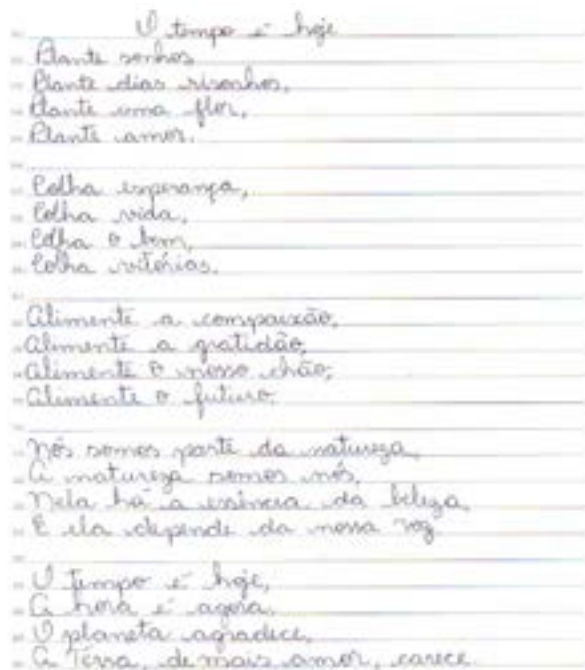 O tempo é hoje
Plante sonhos
Plante dias risonhos,
Plante uma flor,
Plante amor.
Colha esperança,
Colha vida,
Colha o bem,
Colha vitórias.
Alimente a compaixão,
Alimente a gratidão,
Alimente o nosso chão,
Alimente o futuro.
Nós somos parte da natureza,
A natureza somos nós,
Nela há a essência da beleza,
E ela depende da nossa voz
O tempo é hoje,
A hora é agora.
O planeta agradece,
A Terra, de mais amor, carece.